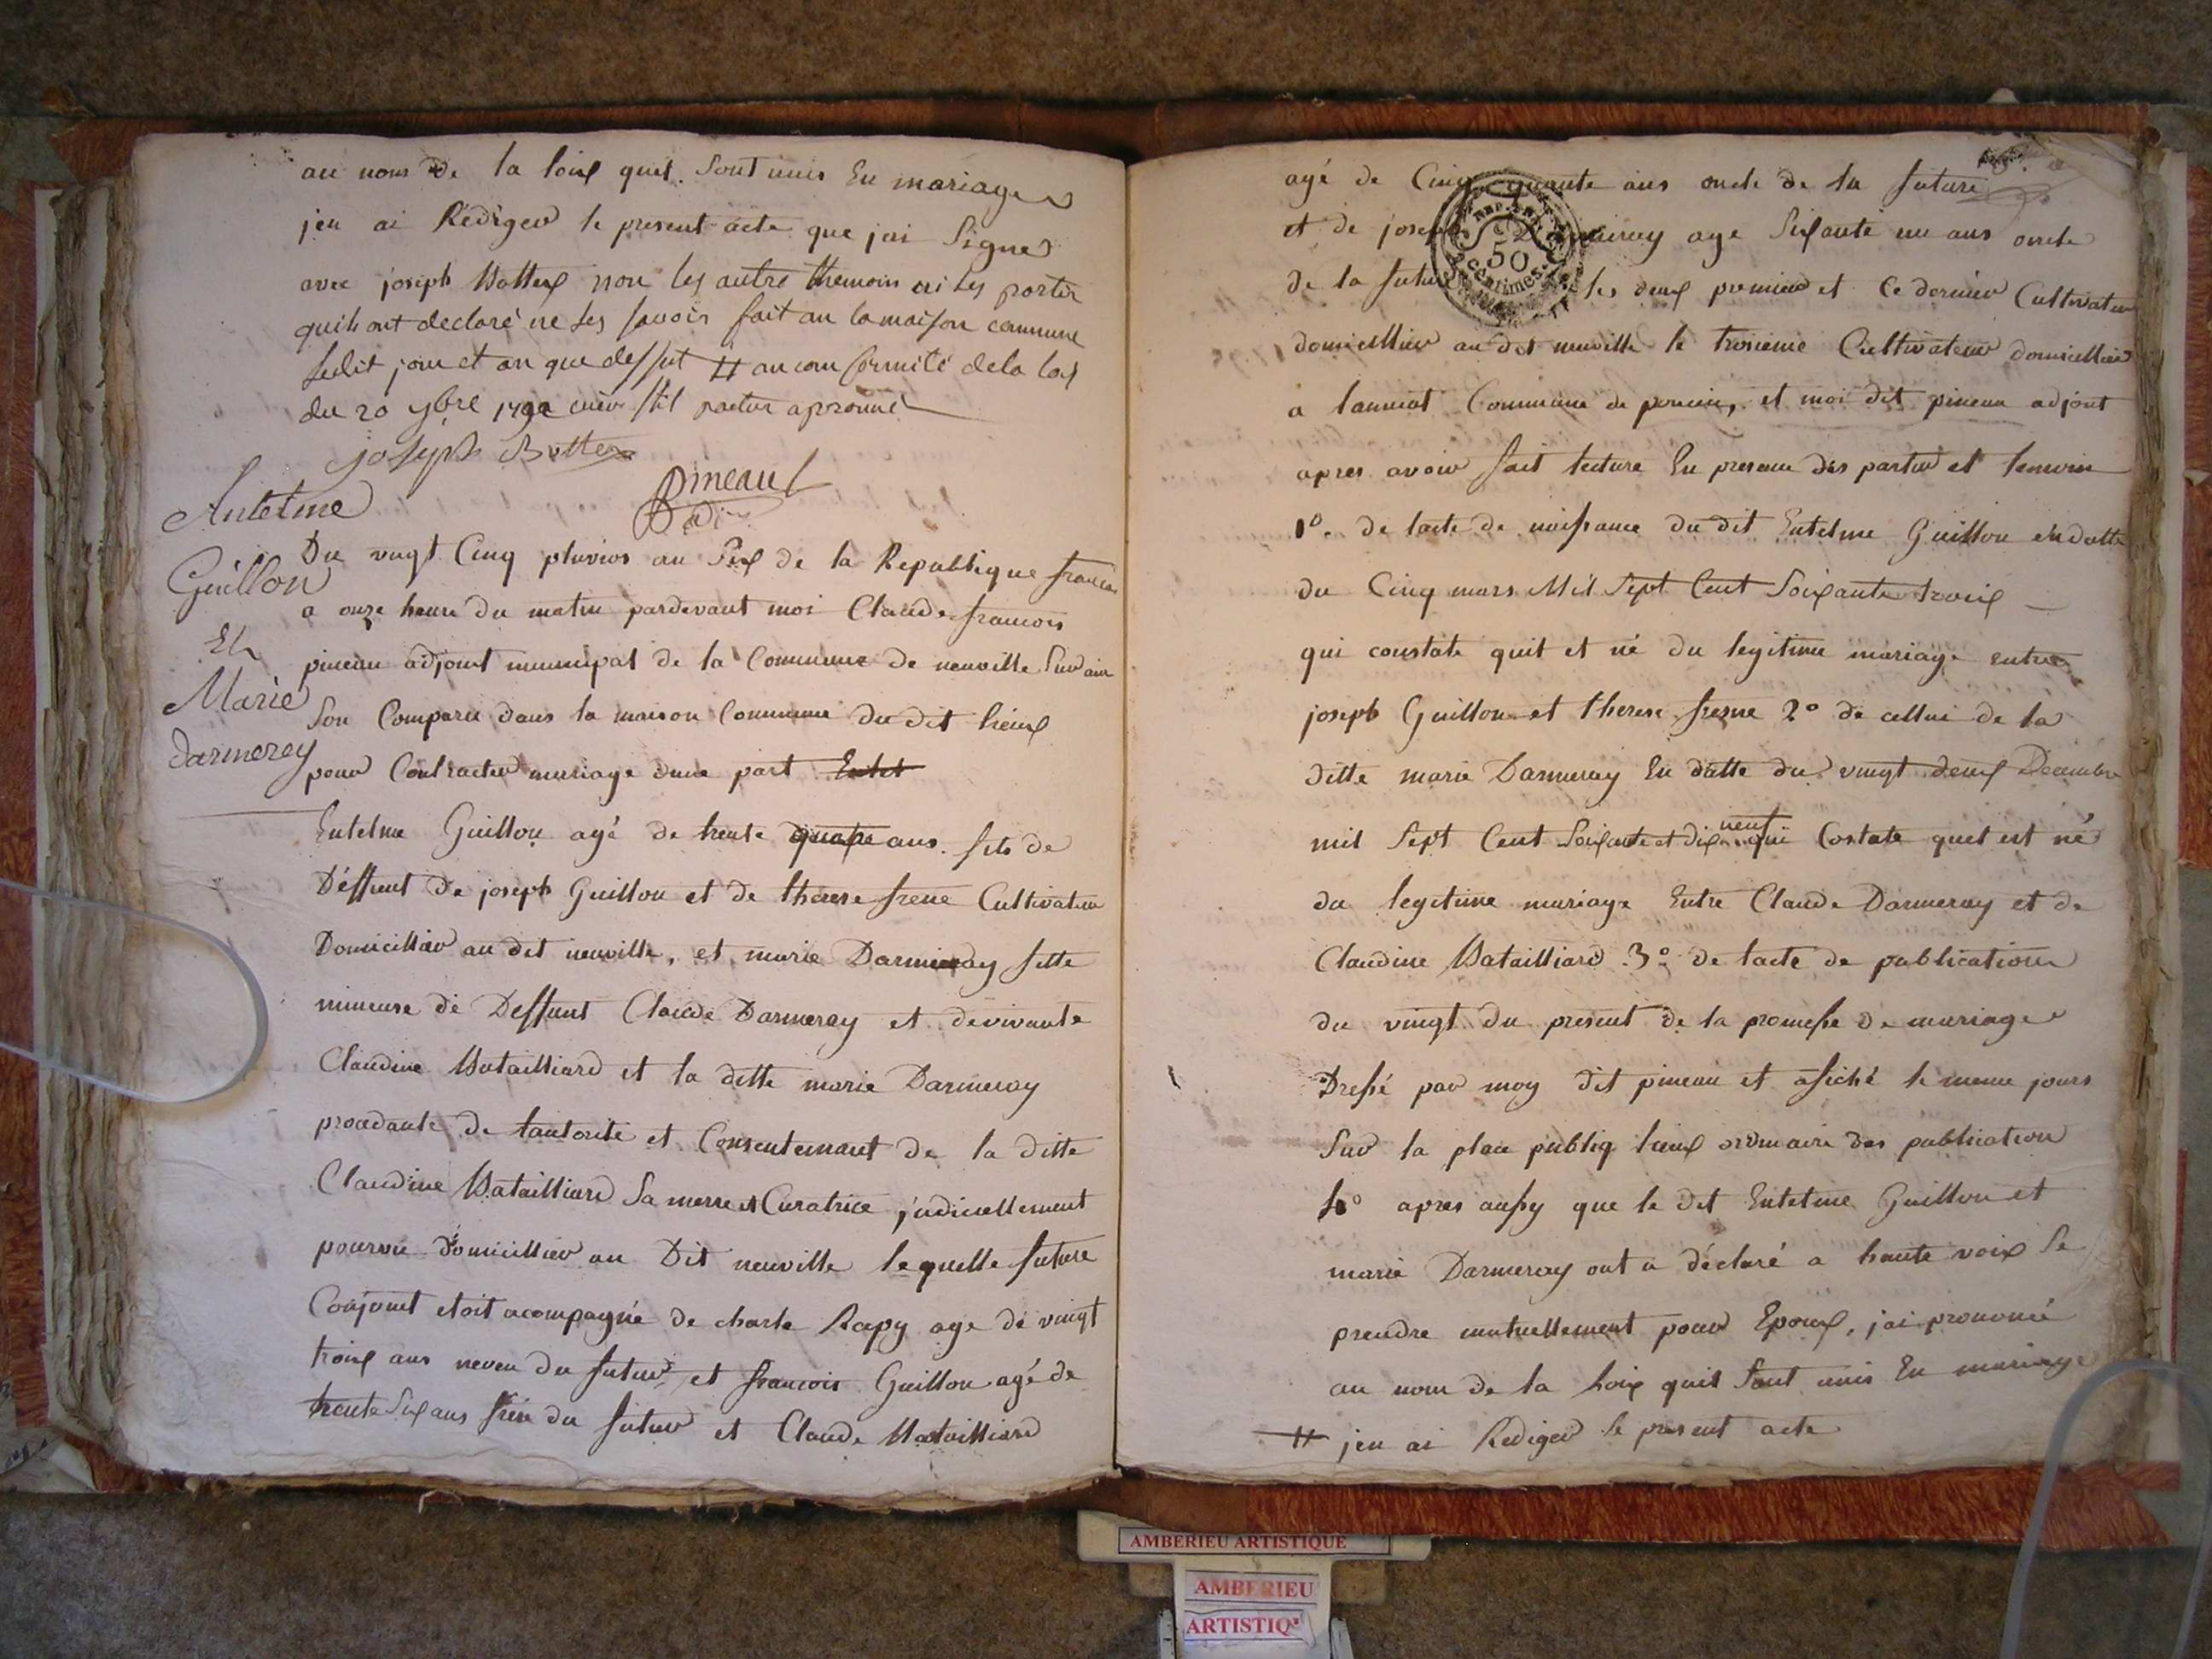 au nom de la loix quil. Sont unis En mariage
jen ai Rédiger le present acte que jai Signer
avec joseph Bottex non les autre themoin ni les partir
quils ont declaré ne les savoir fait au la maison commune
sudit jour et an que dessut # au com formité dela loy
du 20 9bre 1792
joseph Bottex
pineau
adj
Antelme
Guillon
Et
Marie
Darmerey
Du vingt Cinq pluvios an Six de la Republique francai
a onze heure du matin pardevant moi Claude francois
pineau adjoint municipal de la Commune de neuville Sur ain
Son Comparu dans la maison Commune du dit lieux
pour Contracter mariage dune part Entel
Entelme Guillon agé de trente quatre ans. fils de
Déffunt de joseph Guillon et de therese frene Cultivateur
Domicillier au dit neuville, et marie Darmeray fille
mineure de Deffunt Claude Darmeray et de vivante
Claudine Batailliard et la ditte marie Darmeray
procedante de lautorité et Consentemant de la ditte
Claudine Batailliard Sa merre et Curatrice judiciellement
pourvu domicillier au Dit neuville lequelle future
Conjoint etoit acompagné de charle Rapy age de vingt
troix ans neveu du futur, et francois Guillon agé de
trente Six ans frere du futur et Claude Batailliard
agé de Cinq quante ans oncle de la future
et de joseph Darmeray age Sixante un ans oncle
de la future les deux premier et Ce dernier Cultivateur
domicillier au dit neuville le troisieme Cultivateur domicillier
a lanniat Commune de poncin, et moi dit pineau adjoint
apres avoir fait lecture En presence des partie et temoin
1º. de lacte de naissance du dit Entelme Guillon en datte
du Cinq mars Mil Sept Cent Soixante troix
qui constate quil et né du legitime mariage entre
joseph Guillon et therese fresne 2º de cellui de la
ditte marie Darmeray En datte du vingt deux Decembre
mil Sept Cent Soixante et dix neuf qui Costate quel est né
du legitime mariage Entre Claude Darmeray et de
Claudine Batailliard 3º de lacte de publication
du vingt du present de la promesse de mariage
Dressé par moy dit pineau et afiché le meme jours
Sur la place publiq lieux ordinaire des publication
4º apres aussy que le dit Entelme Guillon et
marie Darmeray ont a déclaré a haute voix Se
prendre mutuellement pour Epoux, jai prononcé
au nom de la Loix quil Sont unis En mariage
# jen ai Rediger le present acte
REP. FRA.
50
centimes
AMBERIEU ARTISTIQUE
AMBERIEU
ARTISTIQ